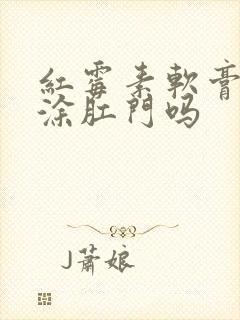 紅霉素軟膏
涂肛門吗
J蕭娘